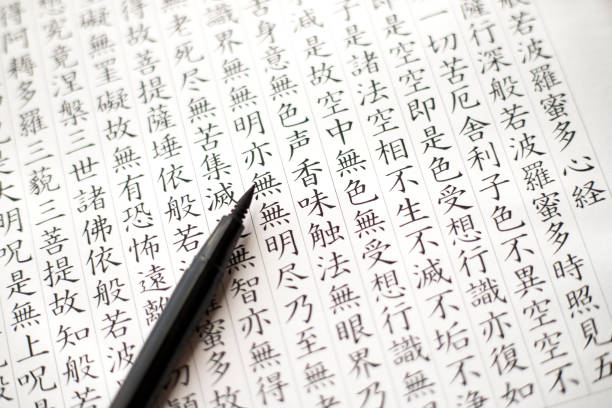 般若波羅蜜多心経
薩行深般若波羅蜜多時照見五
一切苦厄舎利子色不異空空不
是空空即是色受想行識亦復如
子是諸法空相不生不滅不垢不浄
減是故空中無色無受想行識無
舌身意無色声香味触法無眼界乃
識界無無明亦無無明尽乃至無
無老死尽無苦集滅無智亦無得
得故菩提薩埵依般若蜜多故
無罣礙故無有恐怖遠離顛
想究竟涅槃三世諸佛依般若波
得阿耨多羅三藐三菩提故知般
是大明呪是無上呪